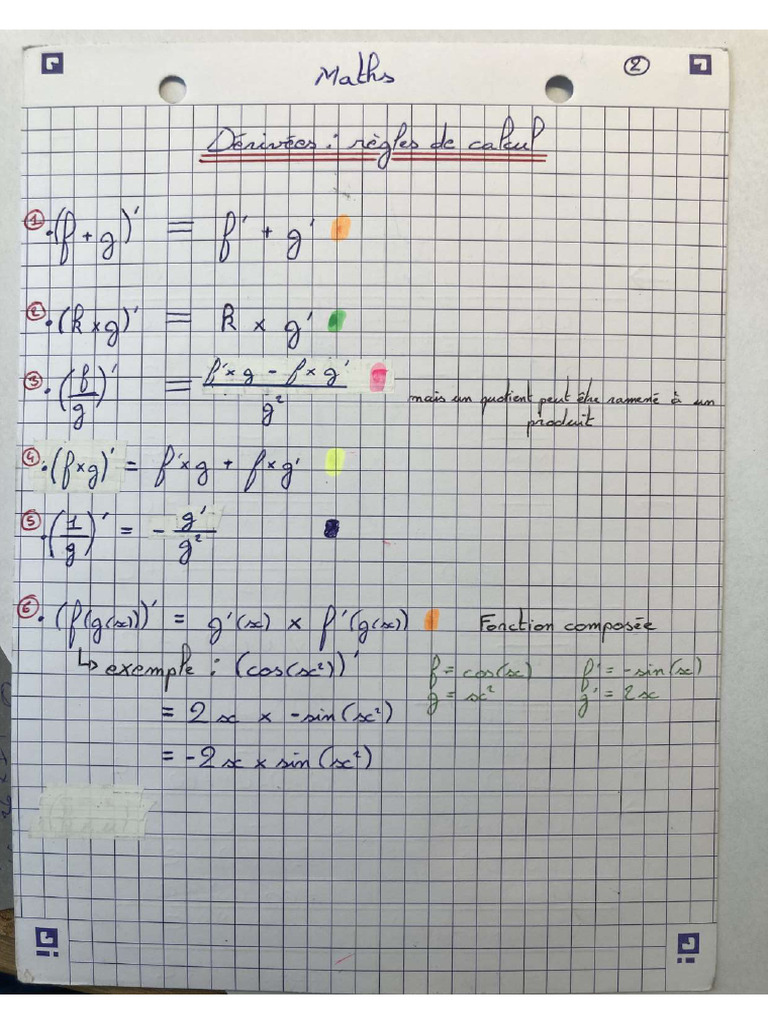 Maths
2
Dérivées : règles de calcul
1 • (f + g)' = f' + g'
2 • (k × g)' = k × g'
3 • (f/g)' = (f' × g - f × g')/g²
mais un quotient peut être ramené à un
produit
4 • (f × g)' = f' × g + f × g'
5 • (1/g)' = - g'/g²
6 • (f(g(x)))' = g'(x) × f'(g(x)) Fonction composée
↳ exemple : (cos(x²))'
f = cos(x) f' = -sin(x)
g = x² g' = 2x
= 2x × -sin(x²)
= -2x × sin(x²)